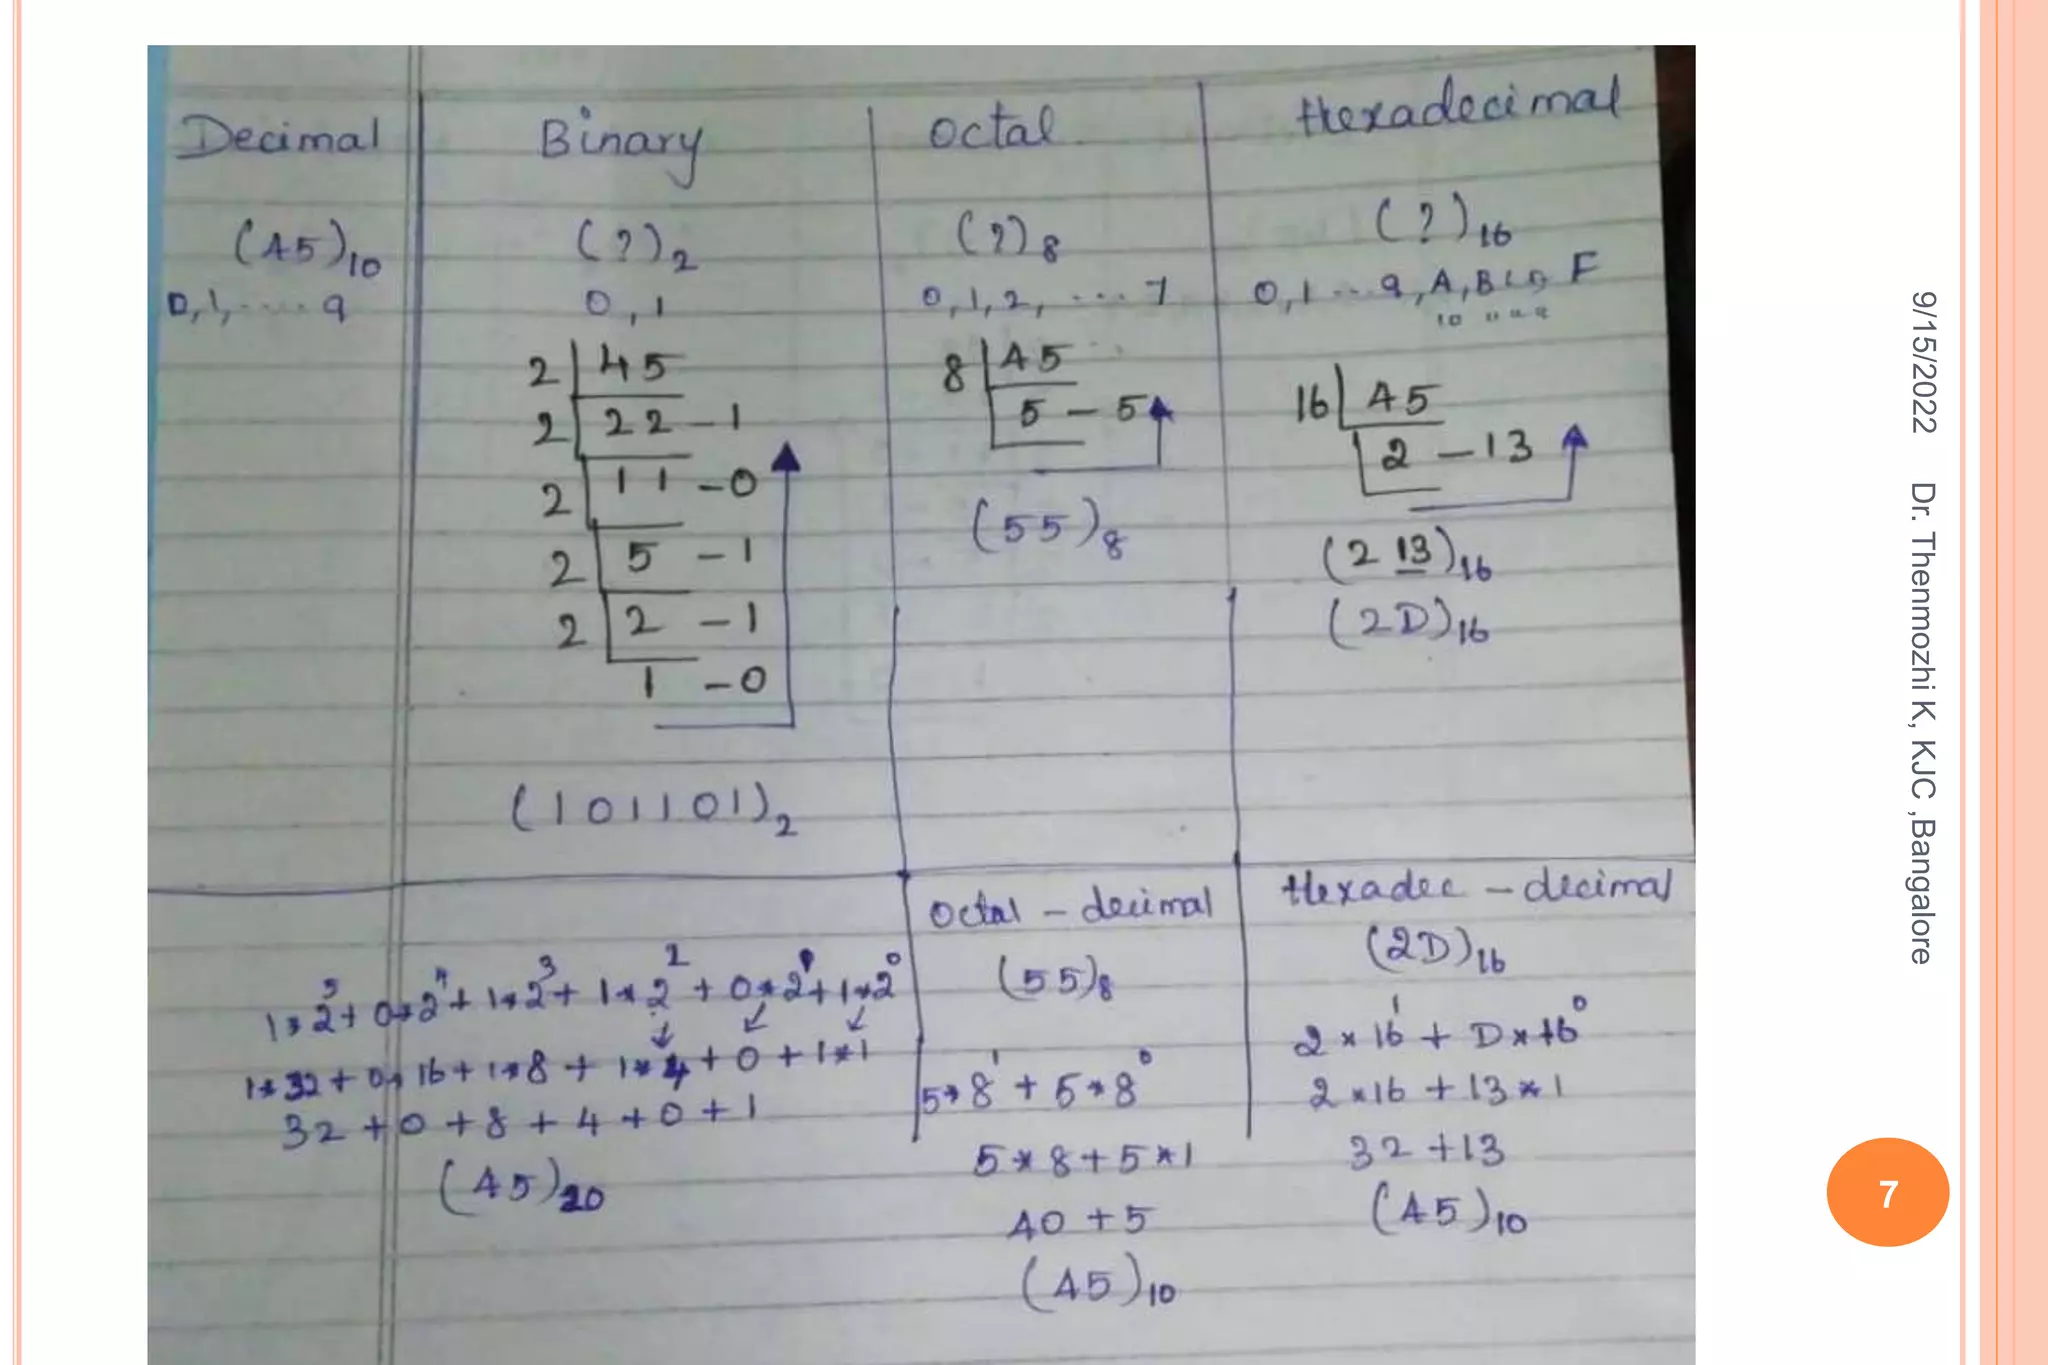 Decimal
(45)10
0, 1, ..... 9
Binary
(?)2
0, 1
2 | 45
2 | 22 - 1
2 | 11 - 0
2 | 5 - 1
2 | 2 - 1
1 - 0
(101101)2
Octal
(?)8
0, 1, 2, .... 7
8 | 45
5 - 5
(55)8
Hexadecimal
(?)16
0, 1 ... 9, A, B C D, F
10
16 | 45
2 - 13
(2 13)16
(2D)16
1*2^5 + 0*2^4 + 1*2^3 + 1*2^2 + 0*2^1 + 1*2^0
1*32 + 0*16 + 1*8 + 1*4 + 0 + 1*1
32 + 0 + 8 + 4 + 0 + 1
(45)10
Octal - decimal
(55)8
5*8^1 + 5*8^0
5*8 + 5*1
40 + 5
(45)10
Hexadec - decimal
(2D)16
2*16^1 + D*16^0
2*16 + 13*1
32 + 13
(45)10
9/15/2022 Dr. Thenmozhi K, KJC ,Bangalore
7